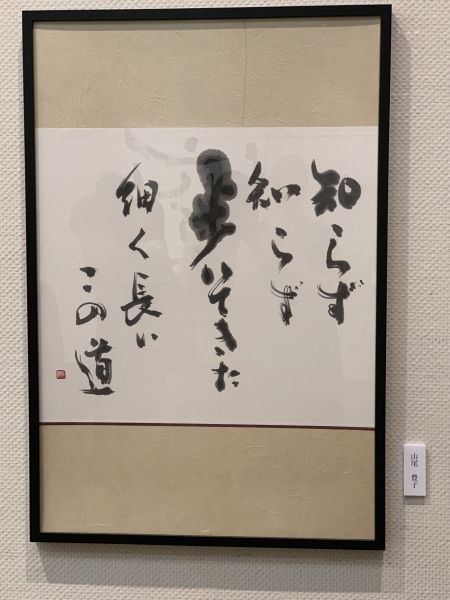 知らず
知らず
歩いてきた
細く長い
この道
山尾 豊子